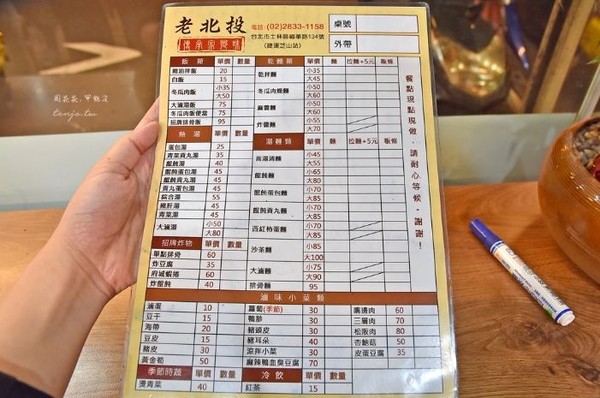 老北投
傳承家饗味
電話 (02)2833-1158
台北市士林區福華路134號
(捷運芝山站)
桌號
外帶
飯類 單價 數量
豬油拌飯 20
白飯 15
冬瓜肉飯 小35 大50
大滷湯飯 75
冬瓜肉飯便當 75
招牌排骨飯 95
熱湯 單價 數量
蛋包湯 25
青菜貢丸湯 35
餛飩湯 40
餛飩蛋包湯 45
餛飩貢丸湯 45
貢丸蛋包湯 45
綜合湯 55
豬肝湯 45
青菜湯 45
大滷湯 小50 大80
招牌炸物 單價 數量
單點排骨 60
炸豆腐 35
府城蝦捲 60
炸餛飩 40
乾麵類 單價 麵 拉麵+5元 粄條
乾拌麵 小35 大45
冬瓜肉燥麵 小50 大60
麻醬麵 小50 大60
炸醬麵 小55 大70
湯麵類 單價 麵 拉麵+5元 粄條
高湯清麵 小35 大45
餛飩麵 小65 大80
餛飩蛋包麵 小70 大85
餛飩貢丸麵 小70 大85
西紅柿蛋麵 小70 大85
沙茶麵 小85 大100
大滷麵 小75 大90
排骨麵 95
餐點現點現做，請耐心等候，謝謝！
滷味小菜類
滷蛋 10
豆干 15
海帶 20
豆皮 15
豬皮 30
黃金筍 50
蘿蔔(季節) 30
鴨胗 30
豬頭皮 30
豬耳朵 40
涼拌小菜 30
麻辣鴨血臭豆腐 70
嘴邊肉 60
三層肉 70
松阪肉 80
杏鮑菇 50
皮蛋豆腐 35
季節時蔬 單價 數量
燙青菜 40
冷飲 單價 數量
紅茶 15
周花花，甲飽沒
tenjo.tw